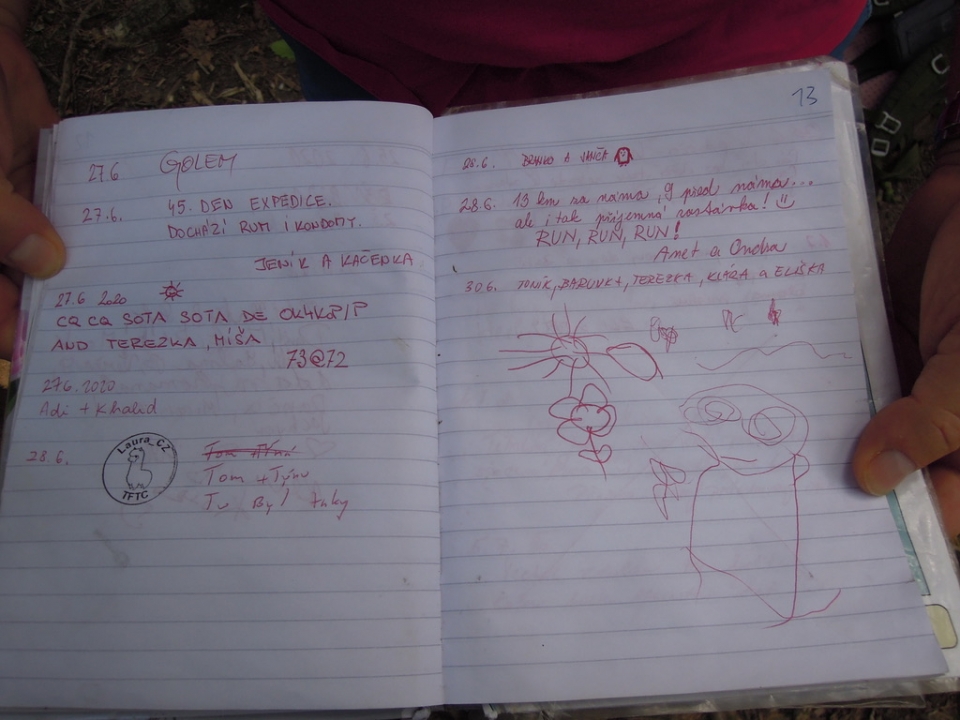 27.6 GOLEM
27.6. 45. DEN EXPEDICE.
DOCHÁZÍ RUM I KONDOMY.
JENÍK A KAČENKA
27.6 2020
CQ CQ SOTA SOTA DE OK4KOP/P
AND TEREZKA, MÍŠA
73@72
27.6.2020
Adi + Khalid
28.6.
Laura_CZ
TFTC
Tom + Týna
Tu Byl taky
13
28.6. 
28.6. 13 km za náma, 9 před náma...
ale i tak příjemná
RUN, RUN, RUN!
Anet a Ondra
30.6. TONÍK, BARUNKA, TEREZKA, KLÁRA a ELIŠKA